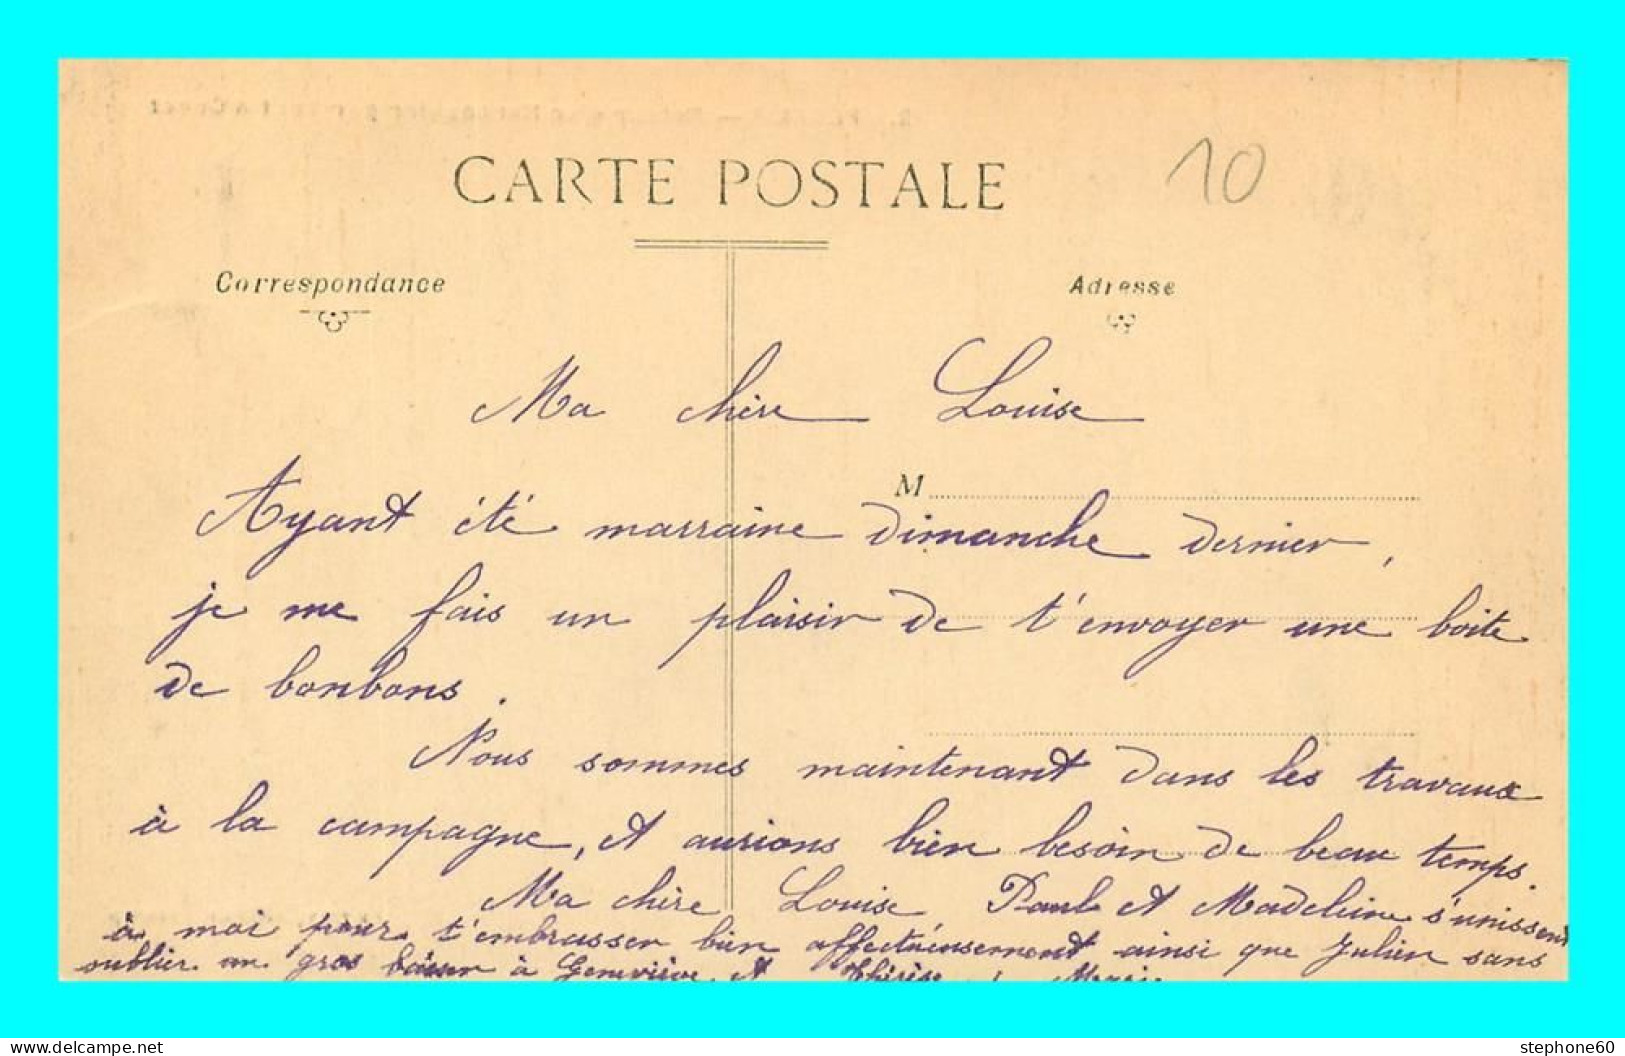 10
CARTE POSTALE
Correspondance
Adresse
Ma chère Louise
M
Ayant été marraine dimanche dernier,
je me fais un plaisir de t'envoyer une boite
de bonbons.
Nous sommes maintenant dans les travaux
à la campagne, et aurions bien besoin de beau temps.
Ma chère Louise Paul et Madeleine s'unissent
à moi pour t'embrasser bien affectueusement ainsi que Julien sans
oublier un gros baiser à Geneviève et Thérèse. Marie
www.delcampe.net
stephone60